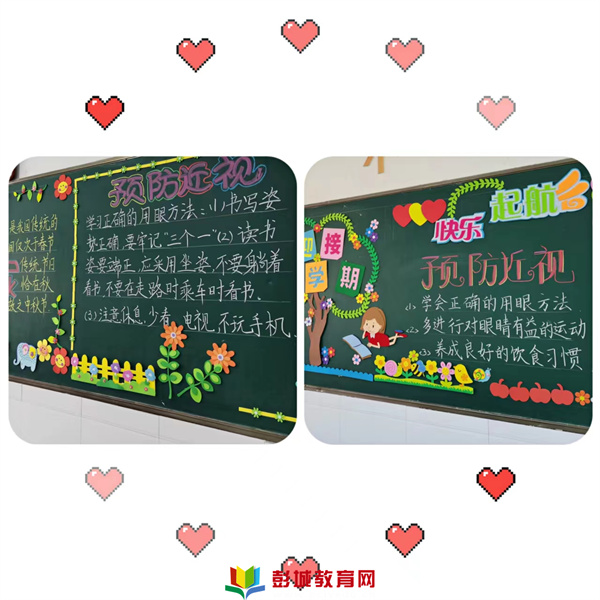 是我国传统的
国仅次于春节
传统节日
恰在秋
预防近视
学习正确的用眼方法:(1)书写姿
势正确,要牢记“三个一”(2)读书
姿要端正,应采用坐姿,不要躺着
看书,不要在走路时乘车时看书.
(3)注意休息,少看 电视,不玩手机.
快乐 起航
接
学 期
预防近视
(1)学会正确的用眼方法
(2)多进行对眼睛有益的运动
(3)养成良好的饮食习惯
彭城教育网